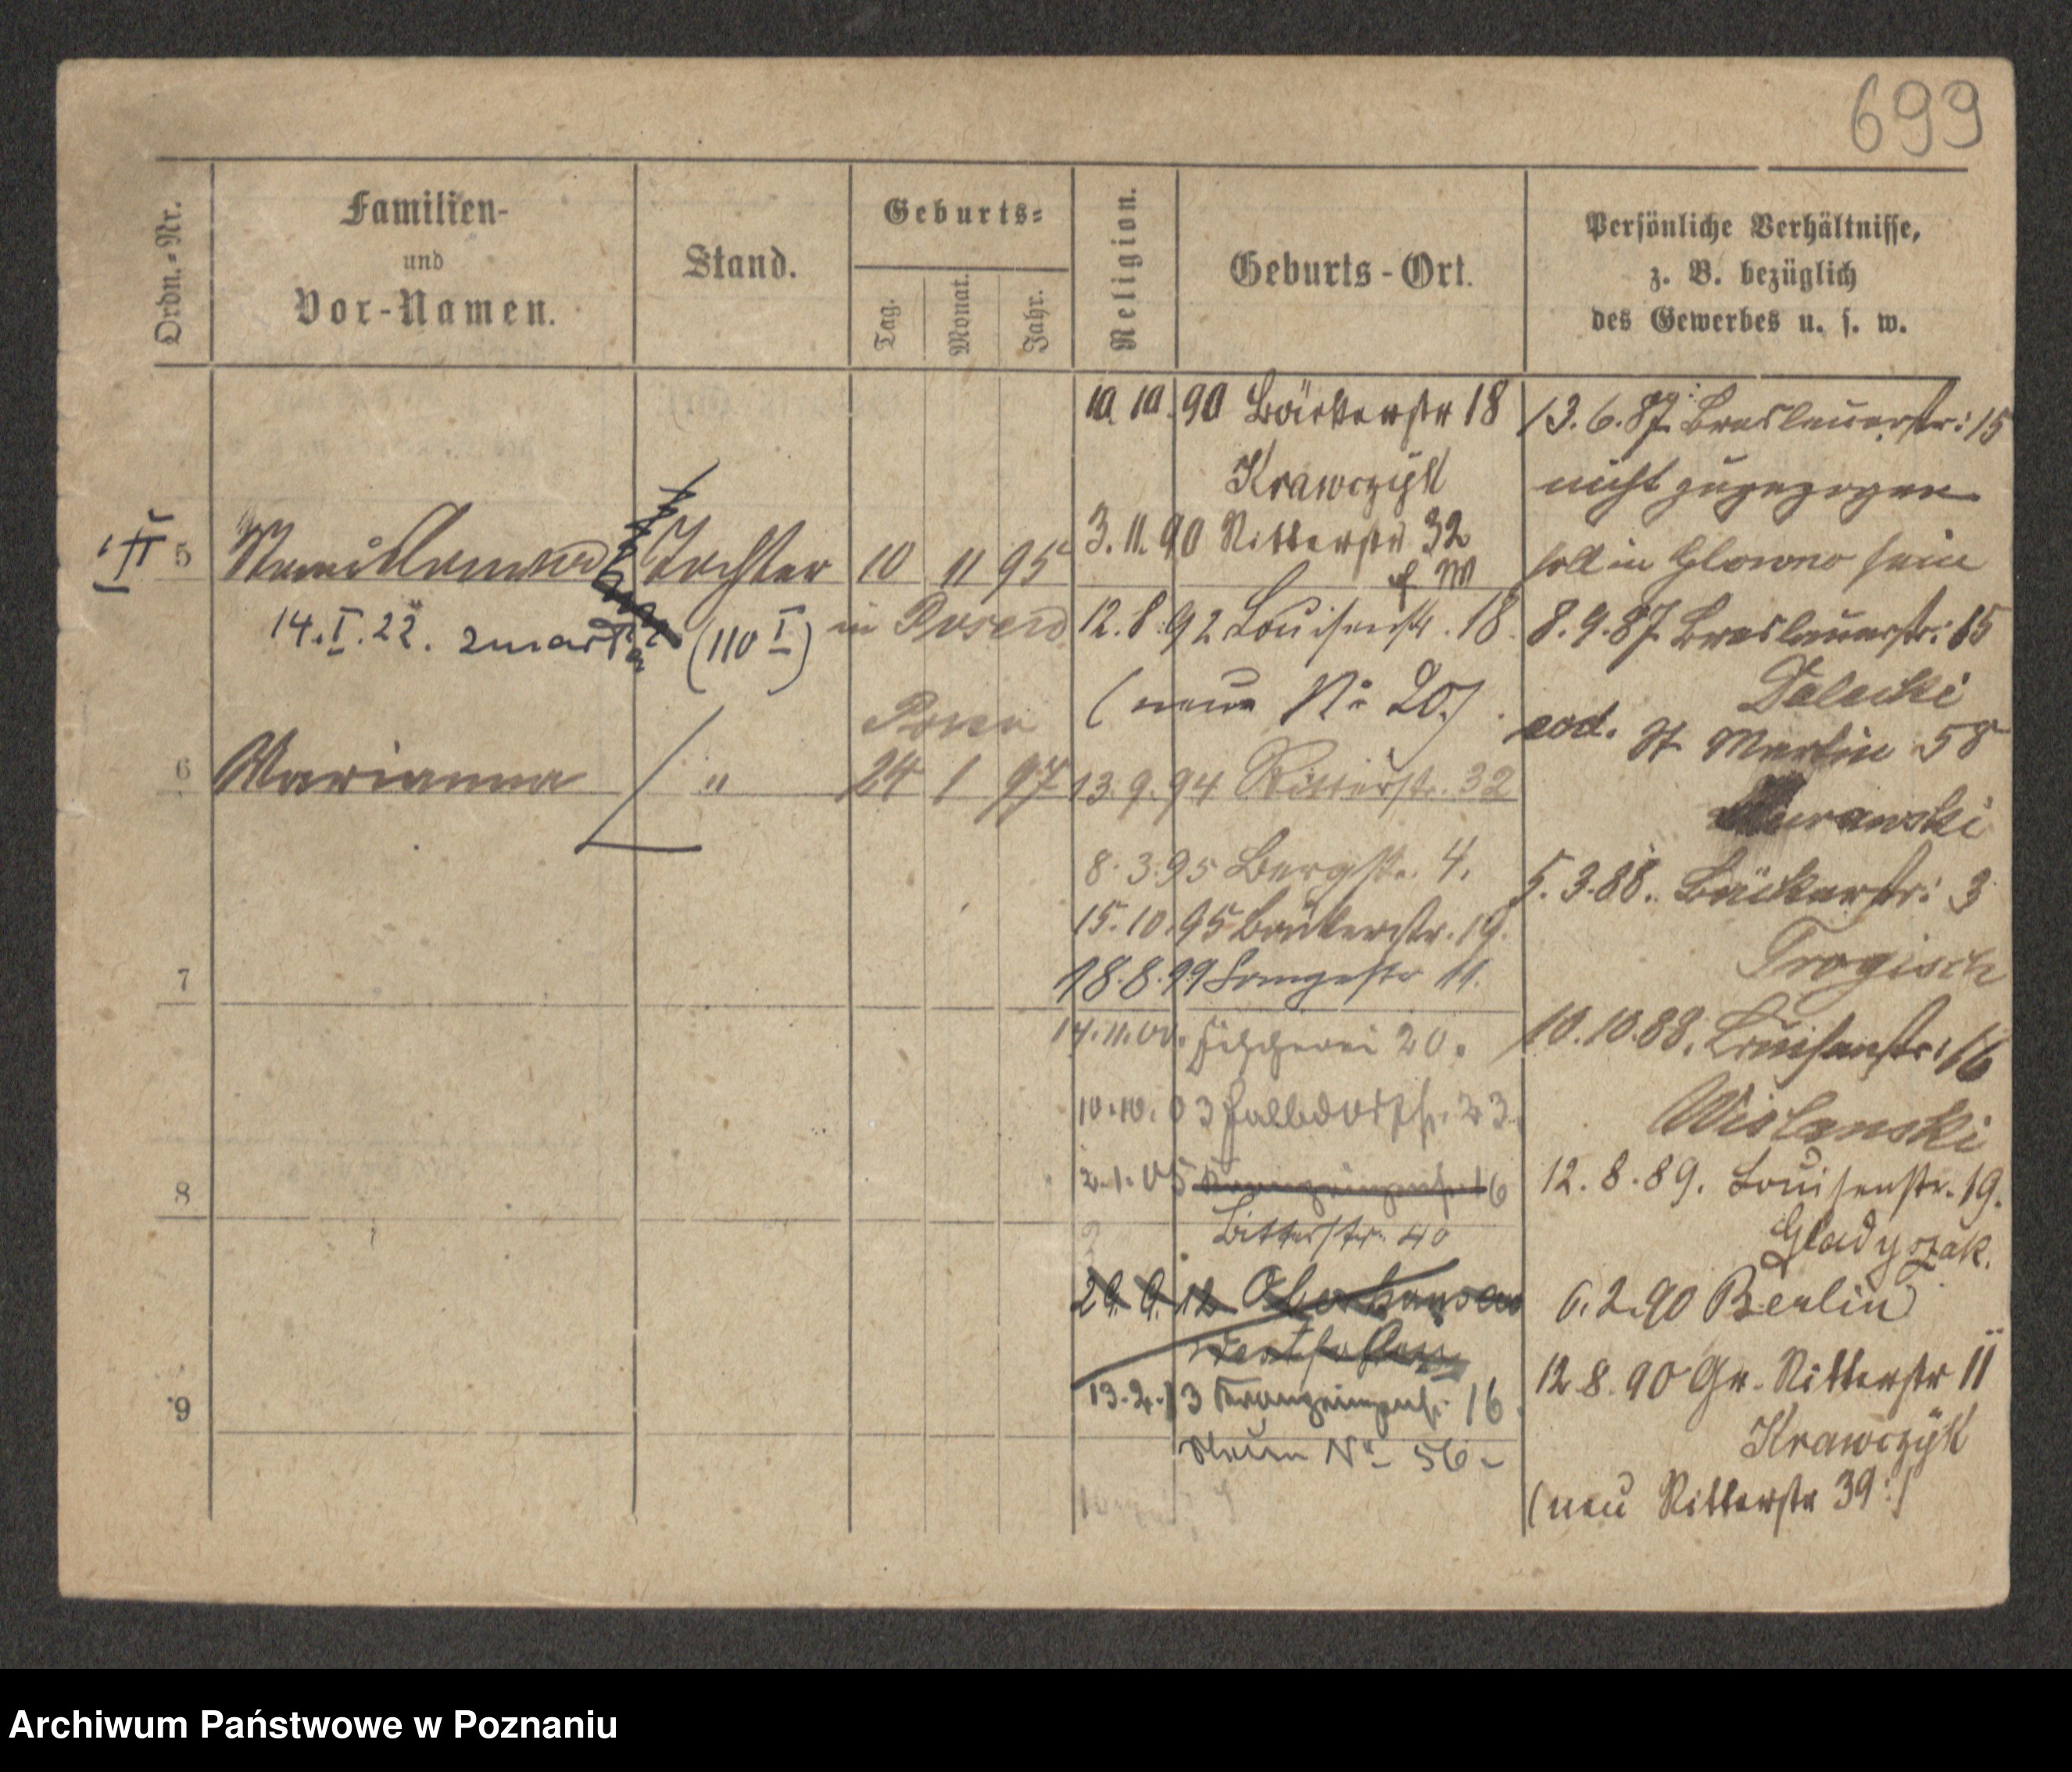 699
Ordn.-Nr.
Familien-
und
Vor-Namen.
Stand.
Geburts-
Tag.
Monat.
Jahr.
Religion.
Geburts-Ort.
Persönliche Verhältnisse,
z. B. bezüglich
des Gewerbes u. s. w.
5 Tochter 10 11 95
14.I.22. zmarła (110 I) in Posen
Posen
6 Marianna " 24 1 97
7
8
9
10 10.90 Bäckerstr 18
Krawczÿk
3.11.90 Ritterstr 32
12.8.92 Louisenstr. 18.
(neue No 20)
13.9.94 Ritterstr. 32
8.3.95 Bergstr. 4.
15.10.95 Bäckerstr. 19.
18.8.99 Langestr 11.
14.11.00. Fischerei 20.
10.10.03 Halbdorfstr. 23.
2.1.05 16
Bitterstr. 40
29.9.12 Oberhausen
Westfalen
13.2.13 16.
Neue No 56-
13.6.87. Breslauerstr: 15
nicht zugezogen
soll in Glowno sein
8.9.87. Breslauerstr: 15
Dalecki
eod. St Martin 58
Murawski
5.3.88. Bäckerstr: 3
Trogisch
10.10.88. Louisenstr: 16
Wislanski
12.8.89. Louisenstr. 19.
Gladyszak.
6.2.90 Berlin
12.8.90 Gr. Ritterstr 11
Krawczÿk
(neu Ritterstr 39:)
Archiwum Państwowe w Poznaniu